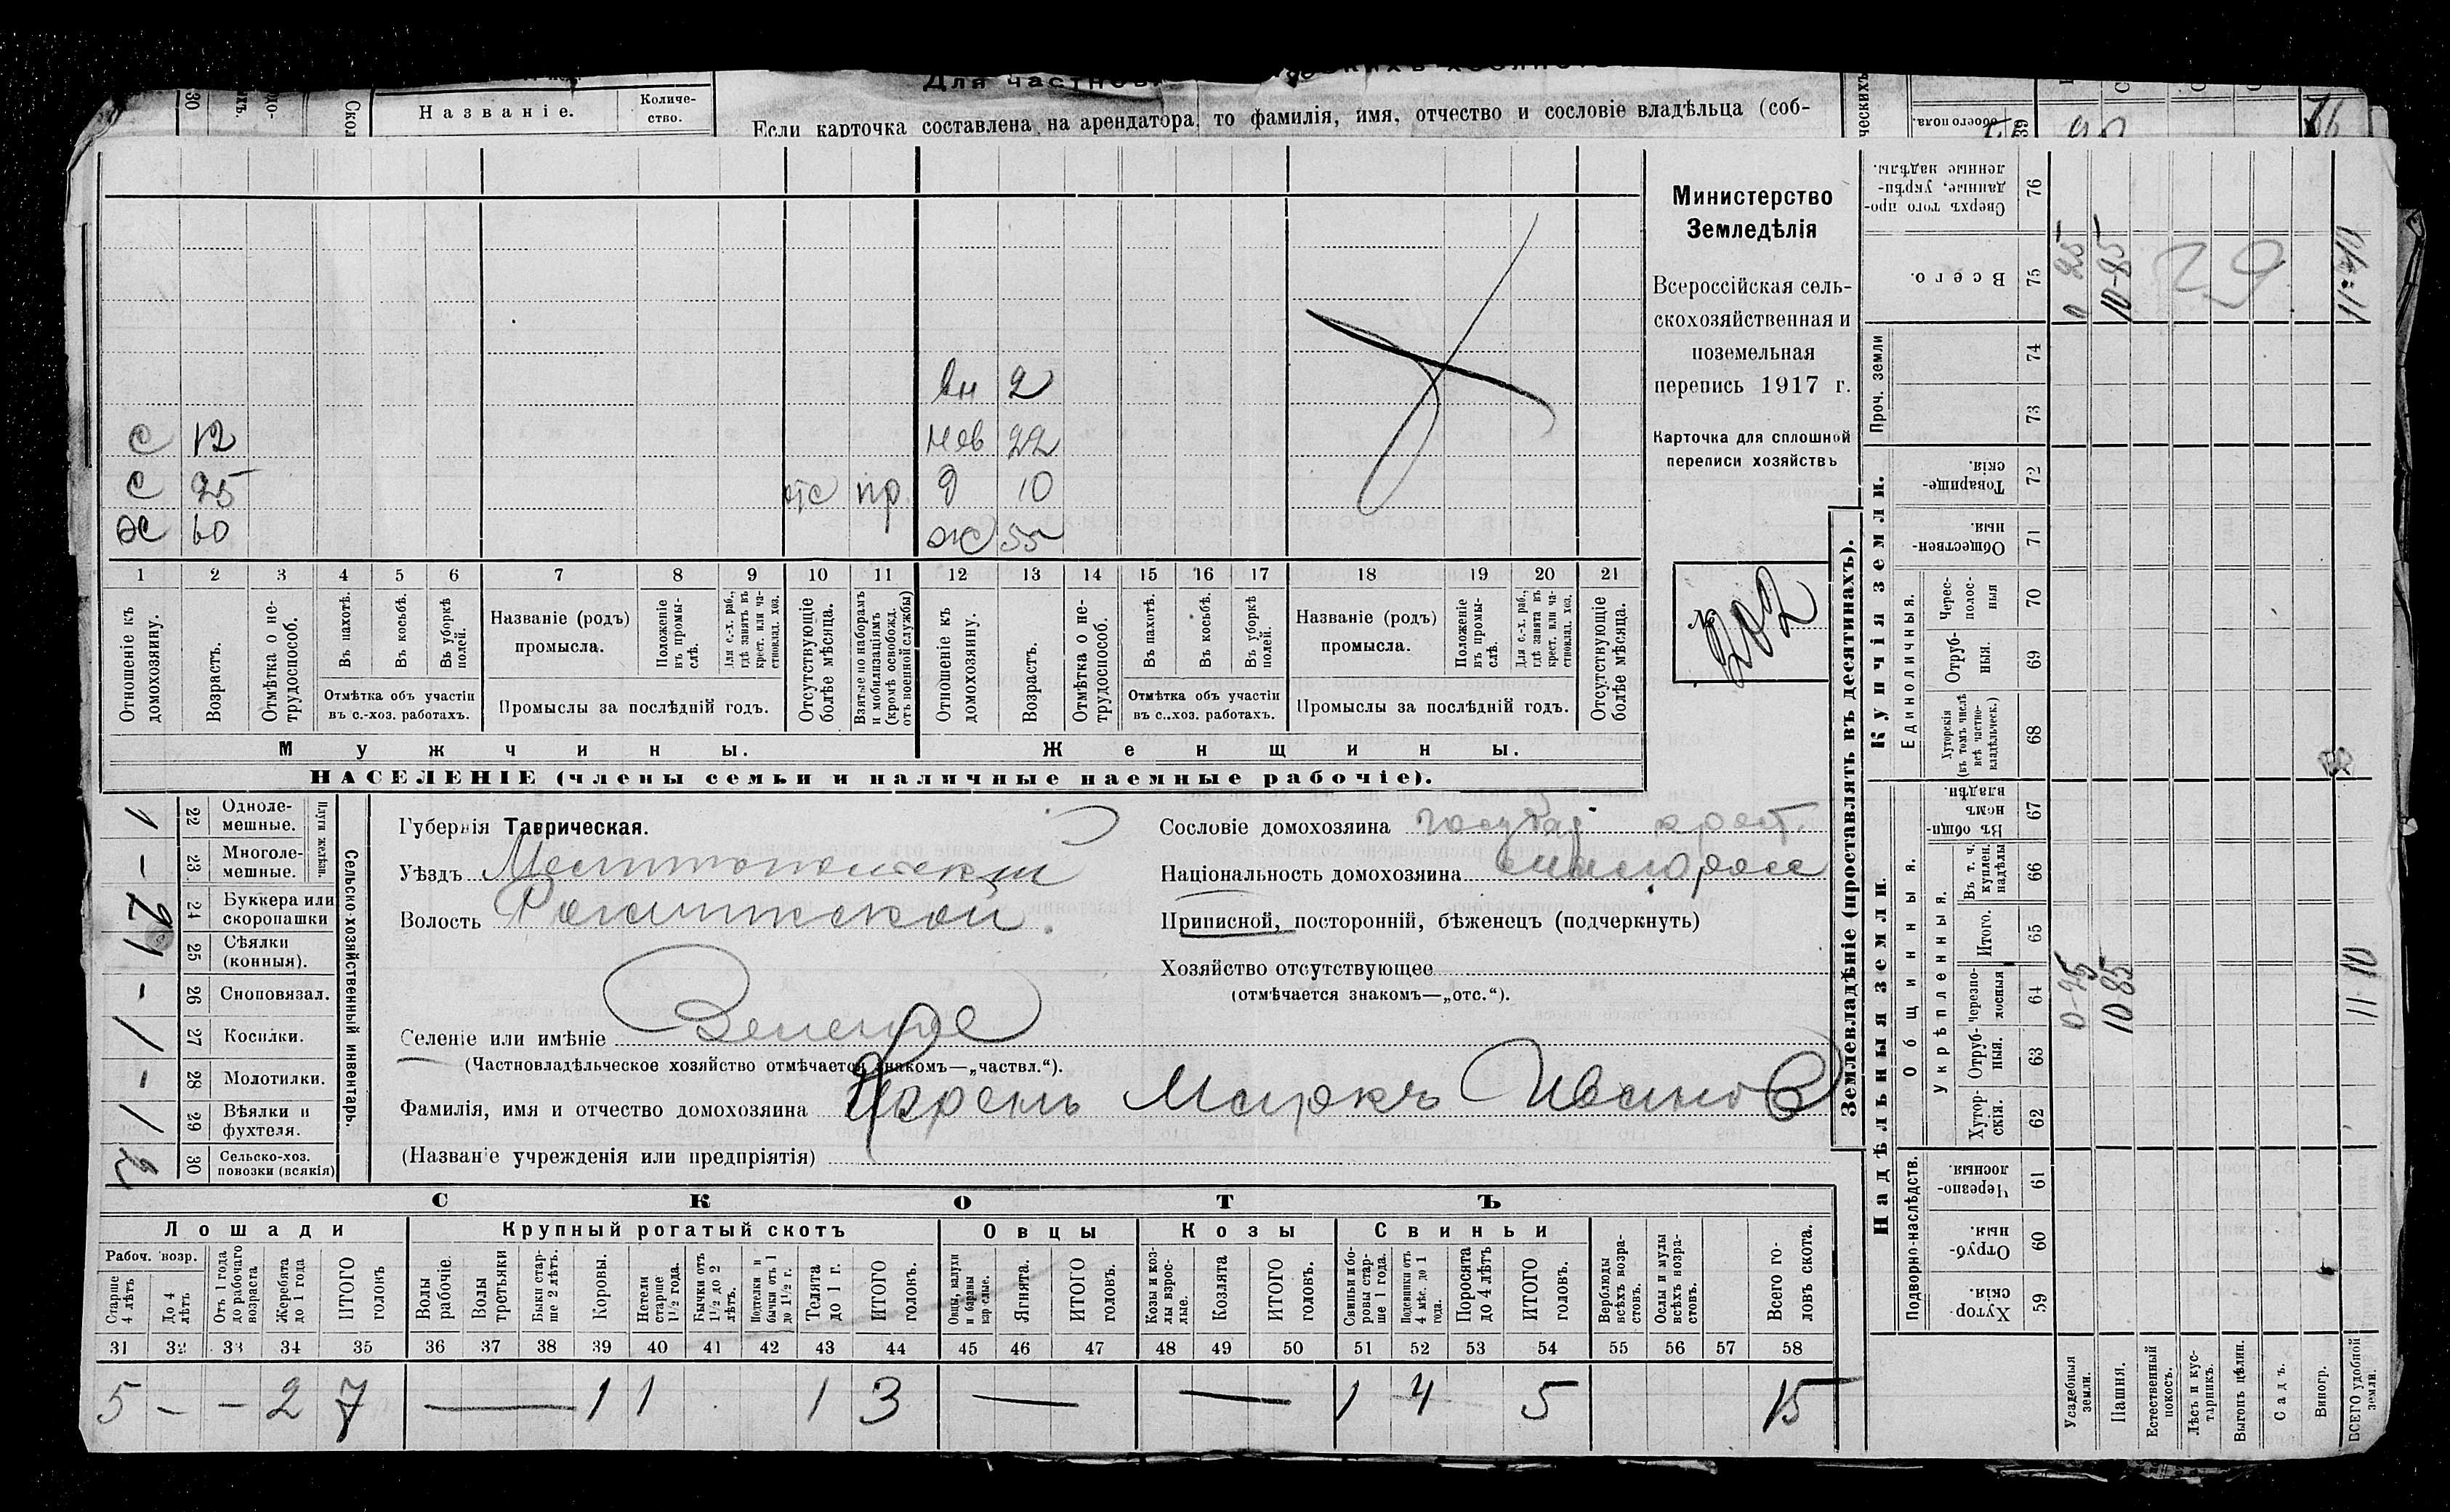 Названіе.
Количе-
ство.
Если карточка составлена на арендатора, то фамилія, имя, отчество и сословіе владѣльца (соб-
вн 2
С 12
нев 22
С 25 отс пр. д 10
Х 60
ж 55
1 2 3 4 5 6 7 8 9 10 11 12 13 14 15 16 17 18 19 20 21
Отношеніе къ домохозяину.
Возрастъ.
Отмѣтка о не-
трудоспособ.
Въ пахотѣ.
Въ косьбѣ.
Въ уборкѣ полей.
Отмѣтка объ участіи
въ с.-хоз. работахъ.
Названіе (родъ)
промысла.
Положеніе въ промы-
слѣ.
Для с.-х. раб., гдѣ занятъ въ крест. или ча-
стновлад. хоз.
Промыслы за послѣдній годъ.
Отсутствующіе болѣе мѣсяца.
Взятые по наборамъ и мобилизаціямъ (кромѣ освобожд. отъ военной службы)
Отношеніе къ домохозяину.
Возрастъ.
Отмѣтка о не-
трудоспособ.
Въ пахотѣ.
Въ косьбѣ.
Въ уборкѣ полей.
Отмѣтка объ участіи
въ с..хоз. работахъ.
Названіе (родъ)
промысла.
Положеніе въ промы-
слѣ.
Для с.-х. раб., гдѣ занята въ крест. или ча-
стновлад. хоз.
Промыслы за послѣдній годъ.
Отсутствующіе болѣе мѣсяца.
Мужчины.
Женщины.
НАСЕЛЕНІЕ (члены семьи и наличные наемные рабочіе).
Министерство
Земледѣлія
Всероссійская сель-
скохозяйственная и
поземельная
перепись 1917 г.
Карточка для сплошной
переписи хозяйствъ
№ 202
Сельско-хозяйственный инвентарь.
Плуги желѣзн.
1 22 Одноле-
мешные.
– 23 Многоле-
мешные.
2 24 Буккера или
скоропашки
1 25 Сѣялки
(конныя).
– 26 Сноповязал.
1 27 Косилки.
– 28 Молотилки.
1 29 Вѣялки и
фухтеля.
2 30 Сельско-хоз.
повозки (всякія)
Губернія Таврическая.
Уѣздъ Мелитопольскій
Волость Рогачикской.
Селеніе или имѣніе Зеленое
(Частновладѣльческое хозяйство отмѣчается знакомъ—„частвл.“).
Фамилія, имя и отчество домохозяина Царенъ Маркъ Иванов
(Названіе учрежденія или предпріятія)
Сословіе домохозяина госуд крест.
Національность домохозяина малоросс
Приписной, посторонній, бѣженецъ (подчеркнуть)
Хозяйство отсутствующее
(отмѣчается знакомъ—„отс.“).
СКОТЪ
Лошади
Крупный рогатый скотъ
Овцы
Козы
Свиньи
Рабоч. возр.
Старше 4 лѣтъ
До 4 лѣтъ
Отъ 1 года до рабочаго возраста
Жеребята до 1 года
ИТОГО головъ
Волы рабочіе.
Волы третьяки
Быки стар-
ше 2 лѣтъ.
Коровы.
Нетели старше 1½ года.
Бычки отъ 1½ до 2 лѣтъ.
Подтелки и бычки отъ 1 до 1½ г.
Телята до 1 г.
ИТОГО головъ.
Овцы, валухи и бараны взрослые.
Ягнята.
ИТОГО головъ.
Козы и коз-
лы взрос-
лые.
Козлята
ИТОГО головъ.
Свиньи и бо-
ровы стар-
ше 1 года.
Подсвинки отъ 4 мѣс. до 1 года.
Поросята до 4 лѣтъ
ИТОГО головъ.
Верблюды всѣхъ возра-
стовъ.
Ослы и мулы всѣхъ возра-
стовъ.
Всего го-
ловъ скота.
31 32 33 34 35 36 37 38 39 40 41 42 43 44 45 46 47 48 49 50 51 52 53 54 55 56 57 58
5 – – 2 7 — 1 1 1 3 — — 1 4 5 15
Землевладѣніе (проставлять въ десятинахъ).
Купчія земли.
Надѣльныя земли.
Сверхъ того про-
данные, укрѣп-
ленные надѣлы. 76
Всего. 75 0 25 10-85 29 11-10
Проч. земли 74
73
Товарище-
скія. 72
Обществен-
ныя. 71
Единоличныя.
Черес-
полос-
ныя 70
Отруб-
ныя. 69
Хуторскія (въ томъ числѣ всѣ частно-
владѣльческ.) 68
Общинныя.
Въ общин-
номъ владѣн. 67
Укрѣпленныя.
Въ т. ч. куплен. надѣлы 66
Итого. 65
Черезпо-
лосныя 64 0-25 10 85 11 10
Отруб-
ныя. 63
Хутор-
скія. 62
Подворно-наслѣдств.
Черезпо-
лосныя 61
Отруб-
ныя. 60
Хутор-
скія. 59
Усадебныя земли.
Пашня.
Естественный покосъ.
Лѣсъ и кус-
тарникъ.
Выгонъ цѣлин.
Садъ.
Виногр.
ВСЕГО удобной земли.